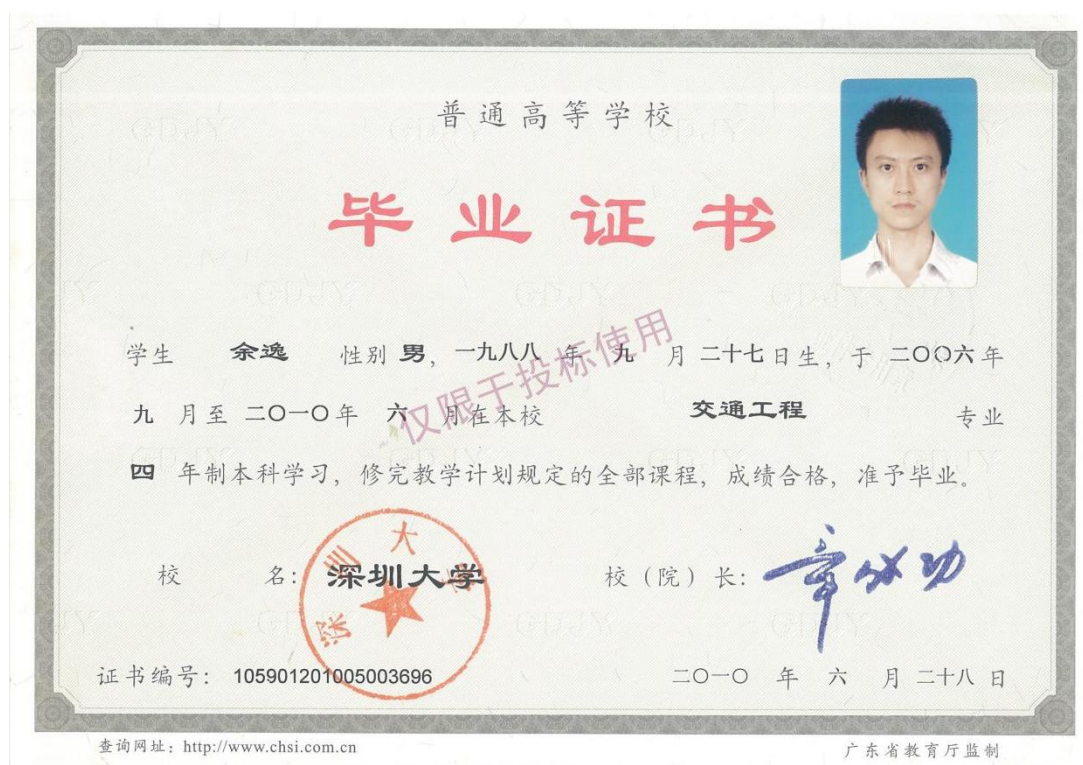 普通高等学校
毕业证书
学生 余逸 性别 男, 一九八八 年 九 月 二十七日生, 于 二〇〇六年
九 月至 二〇一〇年 六 月在本校 交通工程 专业
四 年制本科学习, 修完教学计划规定的全部课程, 成绩合格, 准予毕业。
仅限于投标使用
校 名: 深圳大学
深圳大学
校(院)长: 章必功
证书编号: 105901201005003696
二〇一〇 年 六 月 二十八 日
查询网址: http://www.chsi.com.cn
广东省教育厅监制